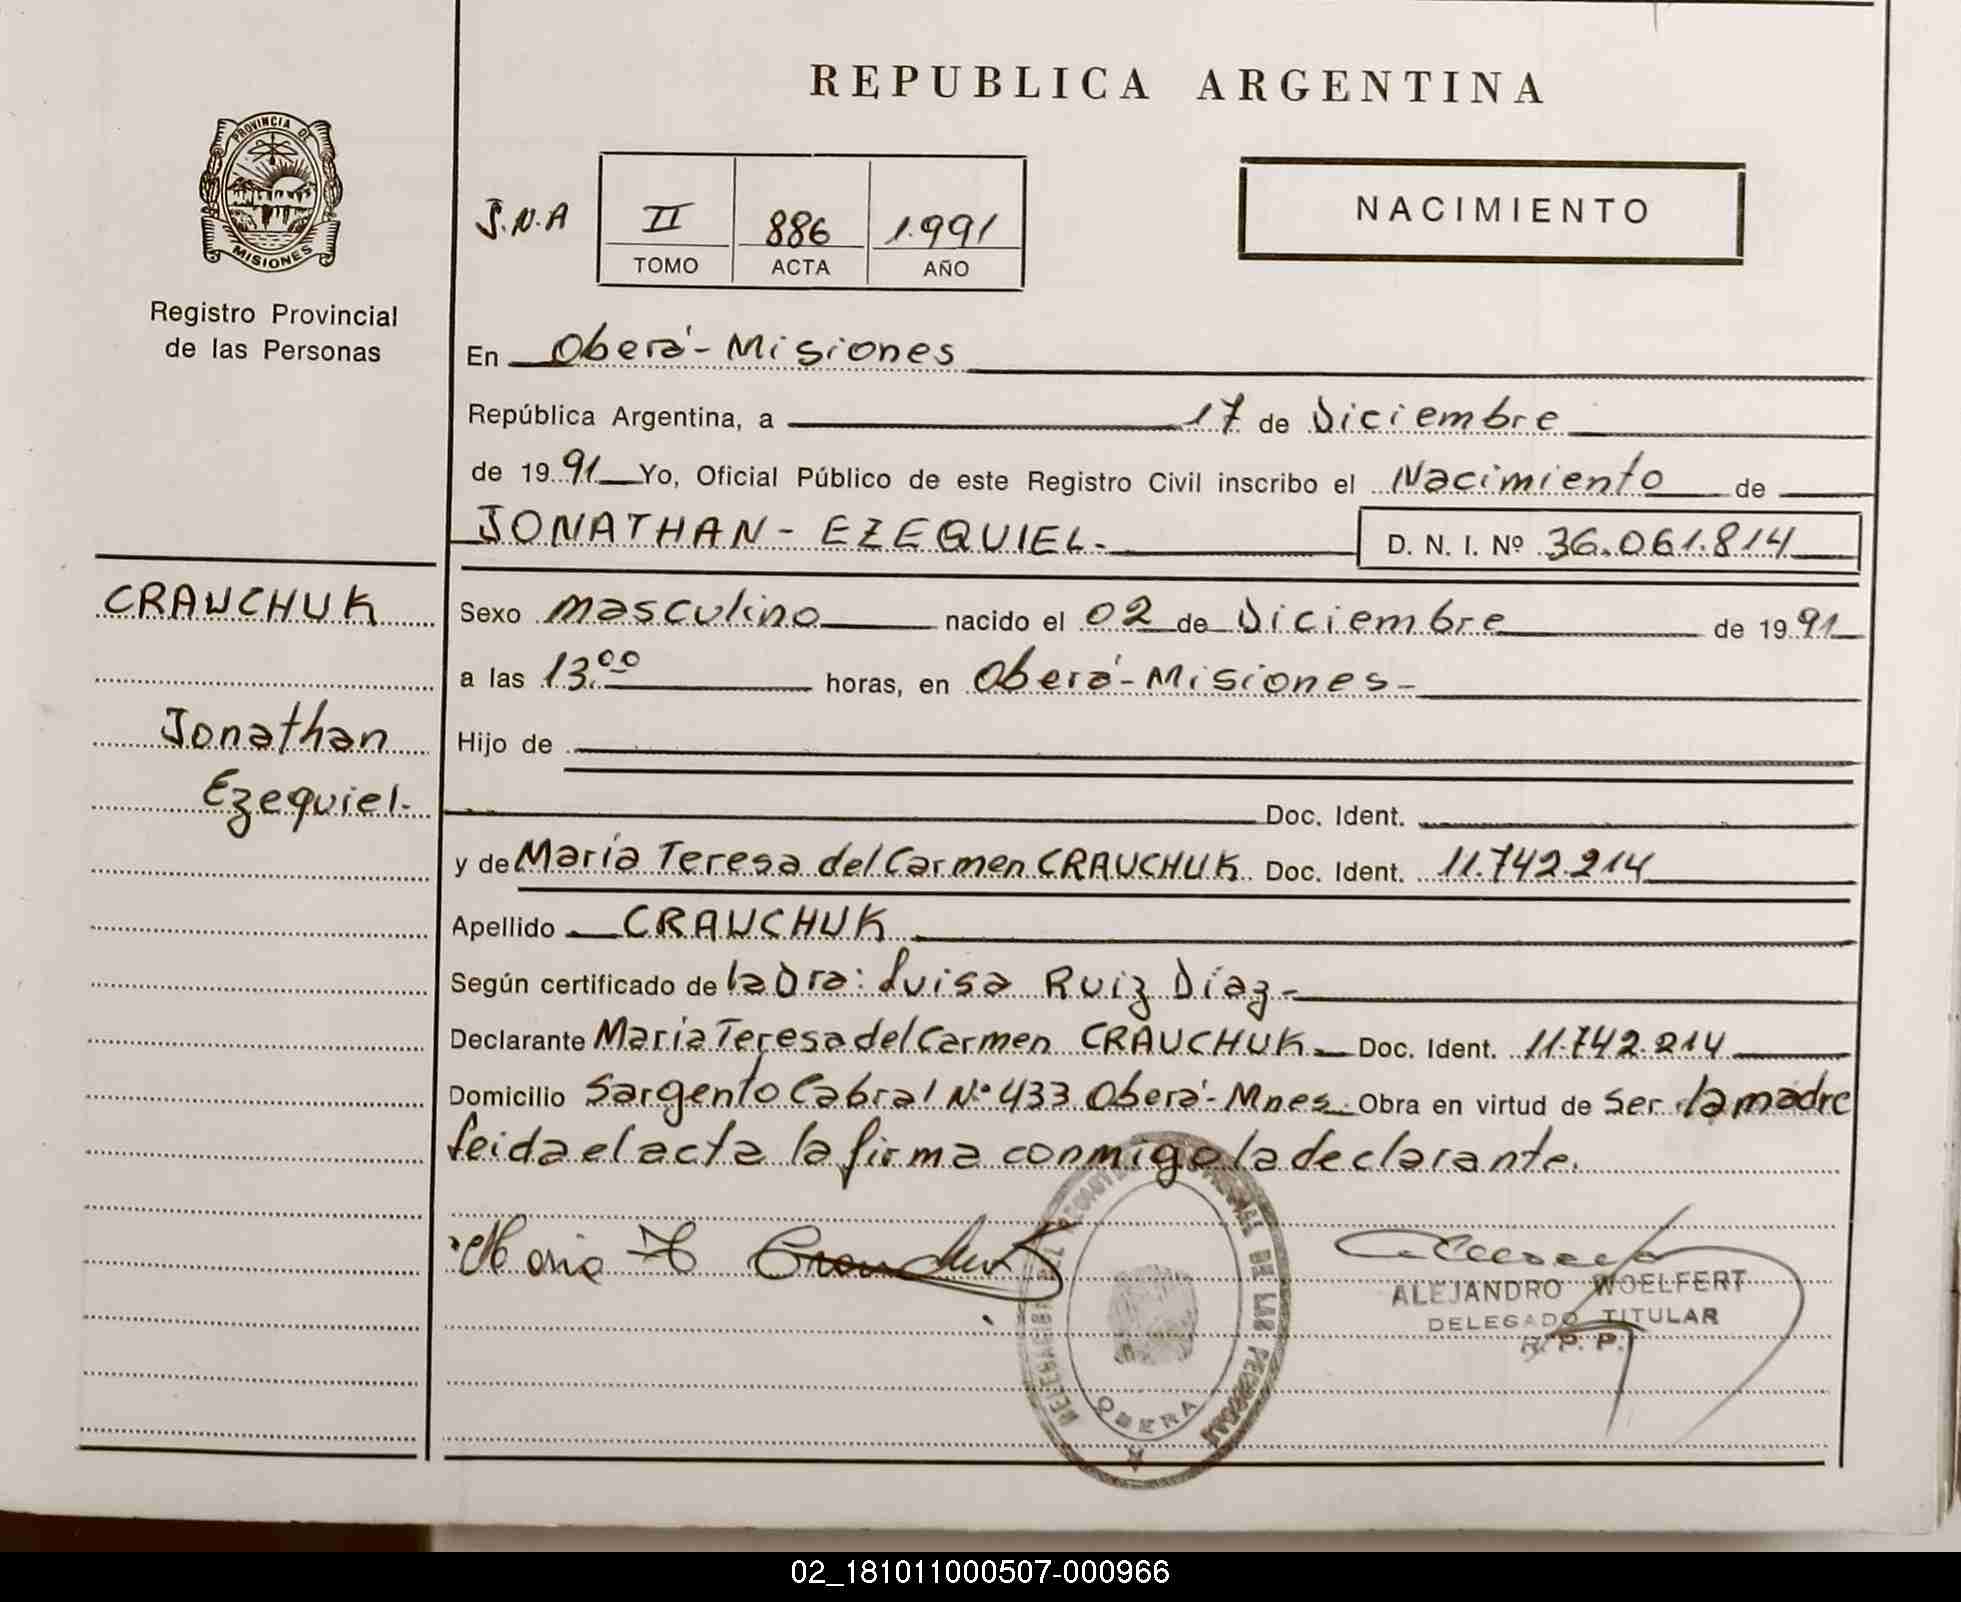 REPUBLICA ARGENTINA
PROVINCIA DE
MISIONES
Registro Provincial
de las Personas
J.N.A
II 886 1.991
TOMO ACTA AÑO
NACIMIENTO
En Oberá - Misiones
República Argentina, a 17 de Diciembre
de 19 91 Yo, Oficial Público de este Registro Civil inscribo el Nacimiento de
JONATHAN - EZEQUIEL.- D. N. I. Nº 36.061.814
CRAUCHUK
Sexo masculino nacido el 02 de Diciembre de 19 91
a las 13.00 horas, en Oberá - Misiones -
Jonathan
Hijo de
Ezequiel.-
Doc. Ident.
y de María Teresa del Carmen CRAUCHUK Doc. Ident. 11.742.214
Apellido CRAUCHUK
Según certificado de la Dra: Luisa Ruiz Díaz -
Declarante María Teresa del Carmen CRAUCHUK Doc. Ident. 11.742.214
Domicilio Sargento Cabral Nº 433 Oberá - Mnes. Obra en virtud de Ser la madre
Leida el acta la firma conmigo la declarante.
Maria
ALEJANDRO WOELFERT
DELEGADO TITULAR
R. P. P.
DE LAS PERSONAS
OBERA
02_181011000507-000966